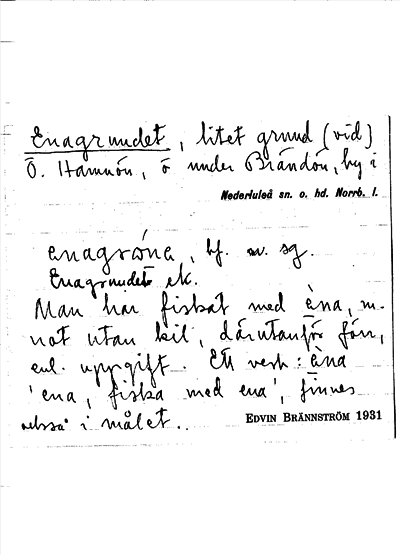 Enagrundet, litet grund (vid)
Ö. Hamnön, ö under Brändön, by i
Nederluleå sn. o. hd. Norrb. l.
enagrɷna, bf. sg.
Enagrundet ek.
Man har fiskat med èna, en
not utan kil, därutanför förr,
enl. uppgift. Ett verb: èna
'ena, fiska med ena', finnes
också i målet.
EDVIN BRÄNNSTRÖM 1931